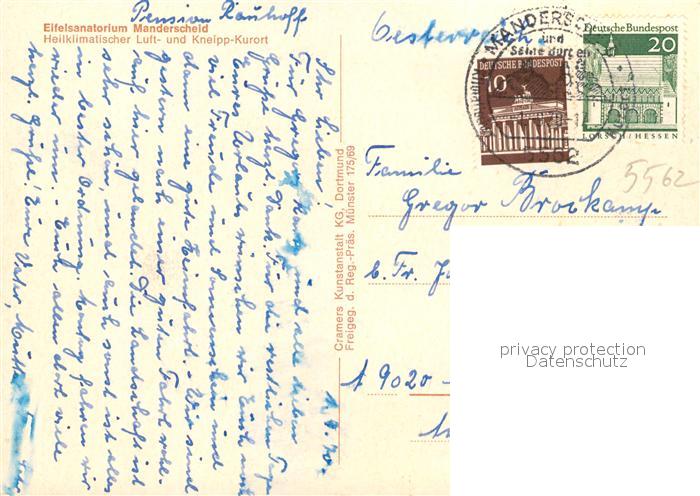 Pension Rauhoff
Eifelsanatorium Manderscheid
Heilklimatischer Luft- und Kneipp-Kurort
1.9.70.
Ihr Lieben,
Für Gregors Karte und alle lieben
Grüße herzl. Dank. Für die restlichen Tage
Eures Urlaubs wünschen wir Euch noch
viel Freude und Sonnenschein und
dann eine gute Heimfahrt. - Wir sind
gestern nach einer guten Fahrt wohl-
auf hier gelandet. Die Landschaft ist
sehr schön, und auch sonst ist alles
in bester Ordnung. Montag fahren wir
wieder heim. - Euch allen dort viele
herzl. Grüße! Eure Vater, Mutti
Cramers Kunstanstalt KG, Dortmund
Freigeg. d. Reg.-Präs. Münster 175/69
Oesterreich
MANDERSC
und
Seine Burgen
5562
DEUTSCHE BUNDESPOST
10
Deutsche Bundespost
20
LORSCH / HESSEN
5562
Familie
Gregor Brockamp
b. Fr.
A 9020
privacy protection
Datenschutz